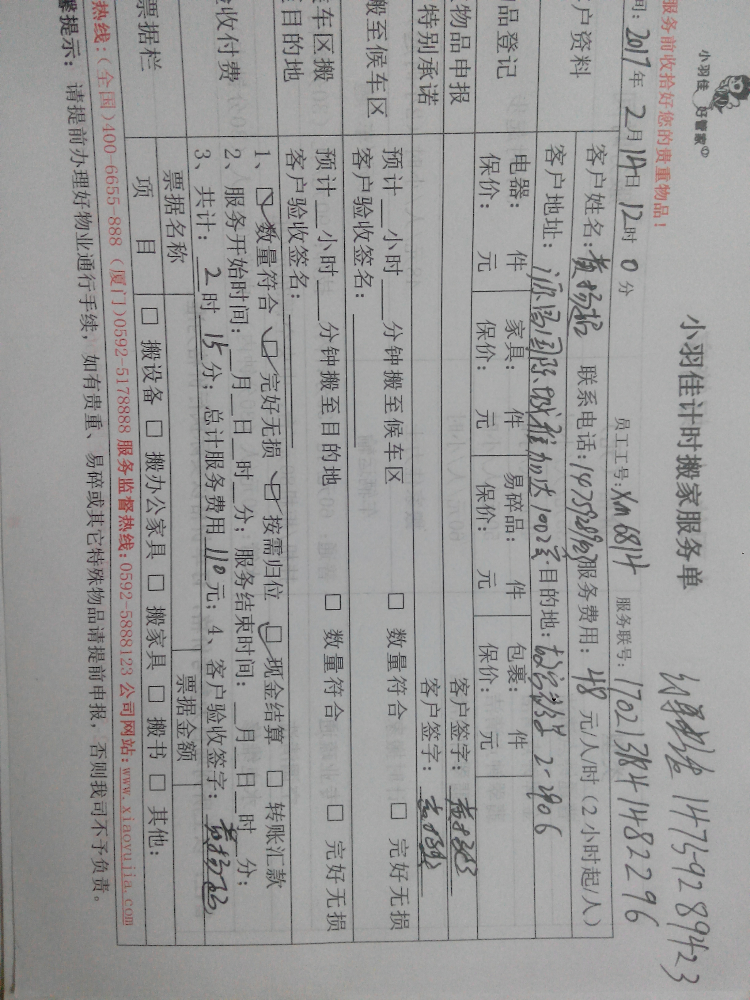 小羽佳 好管家
小羽佳计时搬家服务单
14759289423
服务前收拾好您的贵重物品！
间: 2017年2月14日12时0分 员工工号: Xm6814 服务联号: 17021384148 2296
户资料
客户姓名: 黄扬超 联系电话: 服务费用: 48元/人/时(2小时起/人)
客户地址: 国际城 1002室 目的地: 2-2906
品登记
电器: 件 家具: 件 易碎品: 件 包裹: 件
保价: 元 保价: 元 保价: 元 保价: 元
物品申报
客户签字: 黄扬超
特别承诺
客户签字: 黄扬超
搬至候车区
预计__小时__分钟搬至候车区 □ 数量符合 □ 完好无损
客户验收签名:
车区搬
目的地
预计__小时__分钟搬至目的地 □ 数量符合 □ 完好无损
客户验收签名:
收付费
1、☑数量符合 ☑完好无损 ☑按需归位 ☑现金结算 □ 转账汇款
2、服务开始时间:__月__日__时__分; 服务结束时间:__月__日__时__分;
3、共计: 2时15分; 总计服务费用110元; 4、客户验收签字: 黄扬超
票据栏
票据名称 票据金额
项 目 □ 搬设备 □ 搬办公家具 □ 搬家具 □ 搬书 □ 其他:
热线:(全国)400-6655-888 (厦门)0592-5178888 服务监督热线:0592-5888123 公司网站:www.xiaoyujia.com
提示: 请提前办理好物业通行手续, 如有贵重、易碎或其它特殊物品请提前申报, 否则我司不予负责。